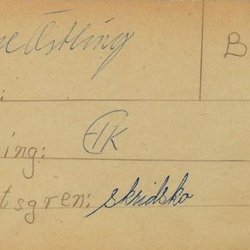 Östling B
:
ing: EIK
tsgren: skridsko